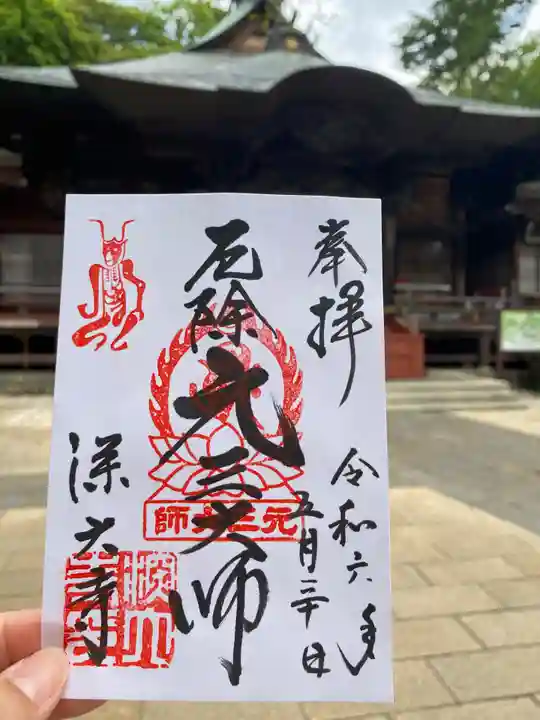 奉拝
令和六年
五月三十日
厄除
元三大師
師大三元
深大寺